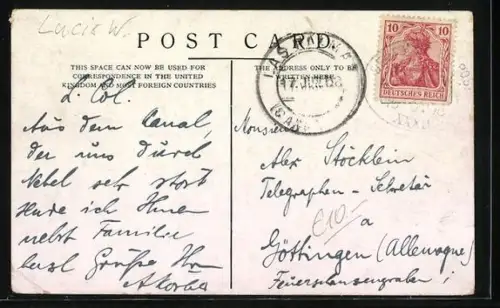 Lucie W.
POST CARD
THIS SPACE CAN NOW BE USED FOR
CORRESPONDENCE IN THE UNITED
KINGDOM AND MOST FOREIGN COUNTRIES
THE ADDRESS ONLY TO BE
WRITTEN HERE
10 10
DEUTSCHES REICH
LAS PALMAS
17 JUL 08
L. Col.
Aus dem Canal,
der uns durch
Nebel sehr stört
sende ich Ihnen
nebst Familie
best Grüße Ihr
Monsieur
Alex Stöcklein
Telegraphen-Sekretär
a
€10-
Göttingen (Allemagne)